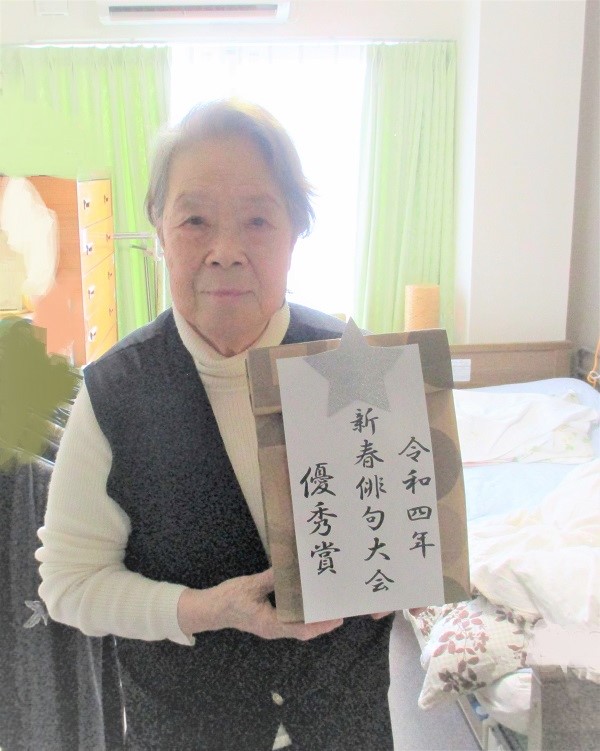 令和四年
新春俳句大会
優秀賞